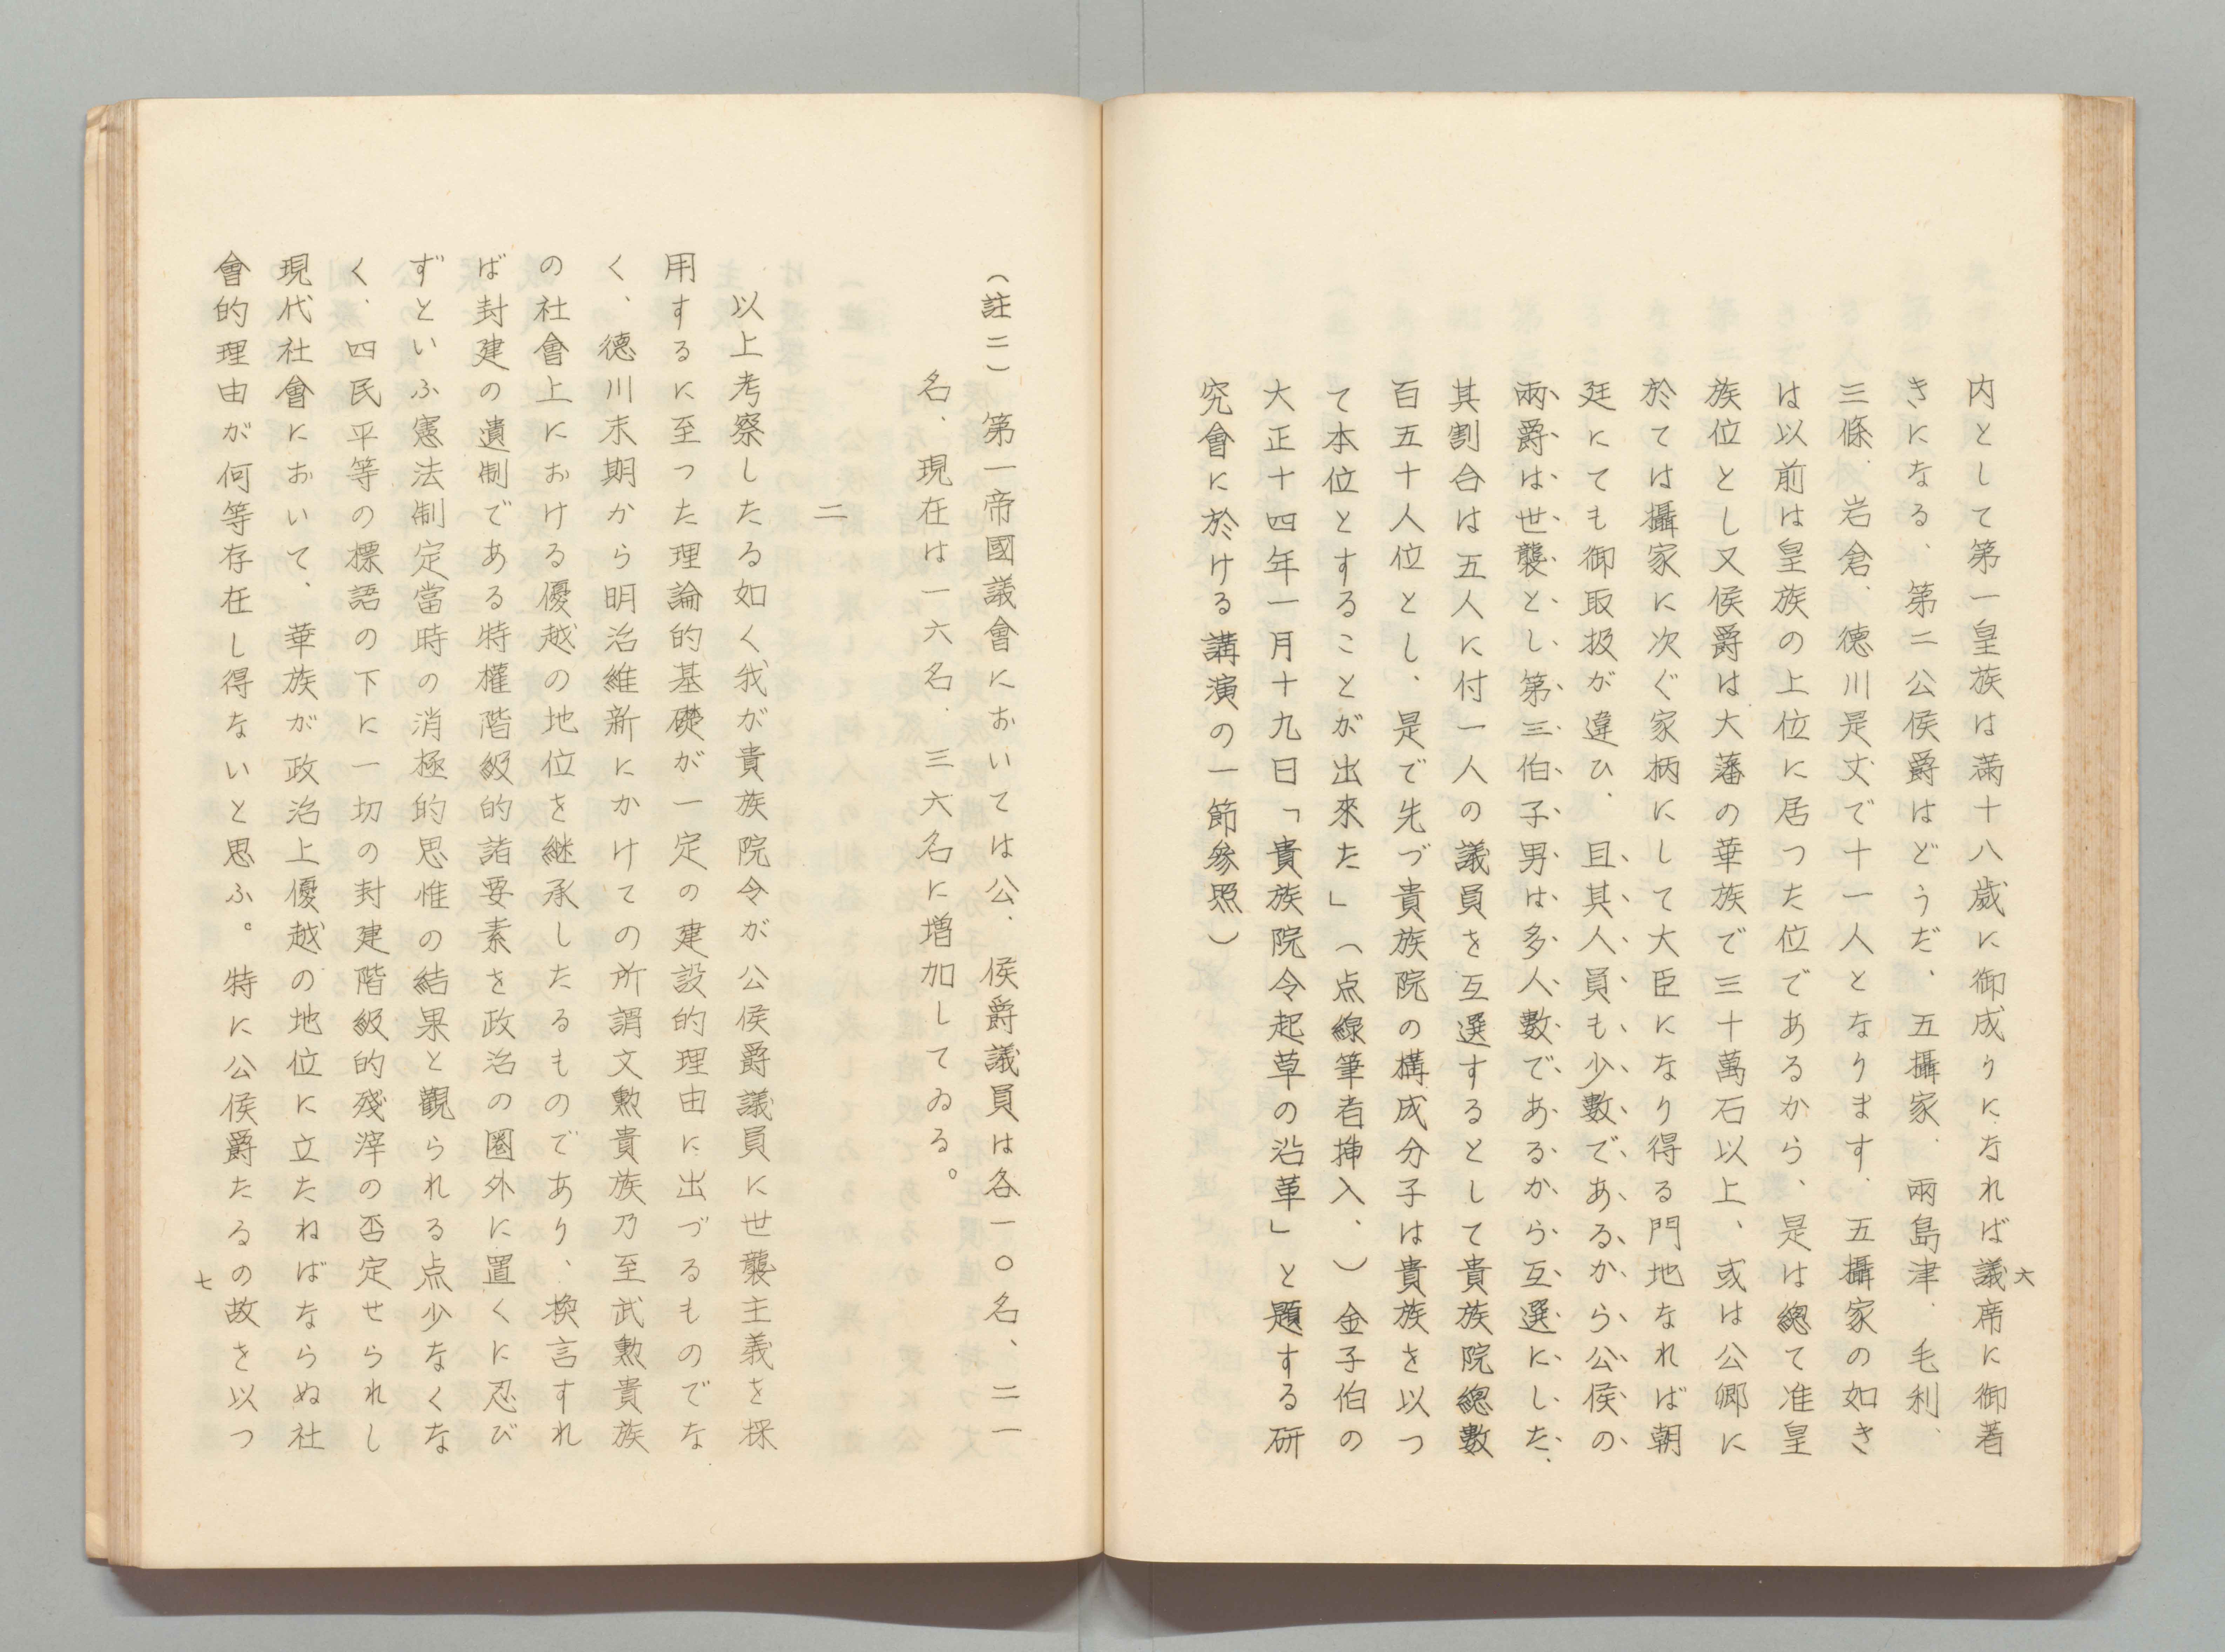 六
内として第一皇族は滿十八歲に御成りになれば議席に御着
きになる、第二公侯爵はどうだ、五攝家、兩島津、毛利、
三條、岩倉、德川是丈で十一人となります、五攝家の如き
は以前は皇族の上位に居つた位であるから、是は總て准皇
族位とし又侯爵は大藩の華族で三十萬石以上、或は公卿に
於ては攝家に次ぐ家柄にして大臣になり得る門地なれば朝
廷にても御取扱が違ひ、且其人員も少數であるから公侯の
兩爵は世襲とし第三伯子男は多人數であるから互選にした、
其割合は五人に付一人の議員を互選するとして貴族院總數
百五十人位とし、是で先づ貴族院の構成分子は貴族を以つ
て本位とすることが出來た」（点線筆者挿入、）金子伯の
大正十四年一月十九日「貴族院令起草の沿革」と題する研
究會に於ける講演の一節參照）
（註二）第一帝國議會においては公、侯爵議員は各一〇名、二一
名、現在は一六名、三六名に増加してゐる。
二
以上考察したる如く我が貴族院令が公侯爵議員に世襲主義を採
用するに至つた理論的基礎が一定の建設的理由に出づるものでな
く、德川末期から明治維新にかけての所謂文勲貴族乃至武勲貴族
の社會上における優越の地位を継承したるものであり、換言すれ
ば封建の遺制である特權階級的諸要素を政治の圏外に置くに忍び
ずといふ憲法制定當時の消極的思惟の結果と觀られる点少なくな
く、四民平等の標語の下に一切の封建階級的殘滓の否定せられし
現代社會において、華族が政治上優越の地位に立たねばならぬ社
會的理由が何等存在し得ないと思ふ。特に公侯爵たるの故を以つ
七